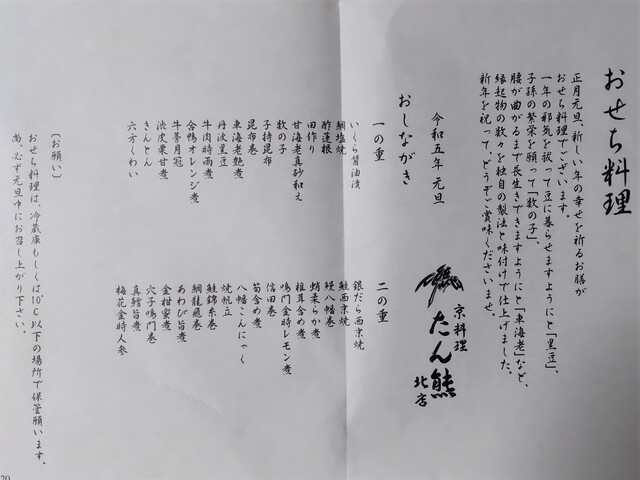 おせち料理
正月元旦、新しい年の幸せを祈るお膳が
おせち料理でございます。
一年の邪気を祓って豆に暮らせますようにと「黒豆」、
子孫の繁栄を願って「数の子」、
腰が曲がるまで長生きできますようにと「車海老」など、
縁起物の数々を独自の製法と味付けで仕上げました。
新年を祝って、どうぞご賞味くださいませ。
京料理
たん熊
北店
令和五年元旦
おしながき
一の重
いくら醤油漬
鯛塩焼
酢蓮根
田作り
甘海老真砂和え
数の子
子持昆布
昆布巻
車海老艶煮
丹波黒豆
牛肉時雨煮
合鴨オレンジ煮
牛蒡月冠
渋皮栗甘煮
きんとん
六方くわい
二の重
銀だら西京焼
鮭西京焼
鰻八幡巻
蛸柔らか煮
椎茸含め煮
鳴門金時レモン煮
信田巻
筍含め煮
八幡こんにゃく
焼帆立
鮭錦糸巻
鯛龍飛巻
あわび旨煮
金柑蜜煮
穴子鳴門巻
真鱈旨煮
梅花金時人参
〔お願い〕
おせち料理は、冷蔵庫もしくは10℃以下の場所で保管願います。
尚、必ず元旦中にお召し上がり下さい。
20